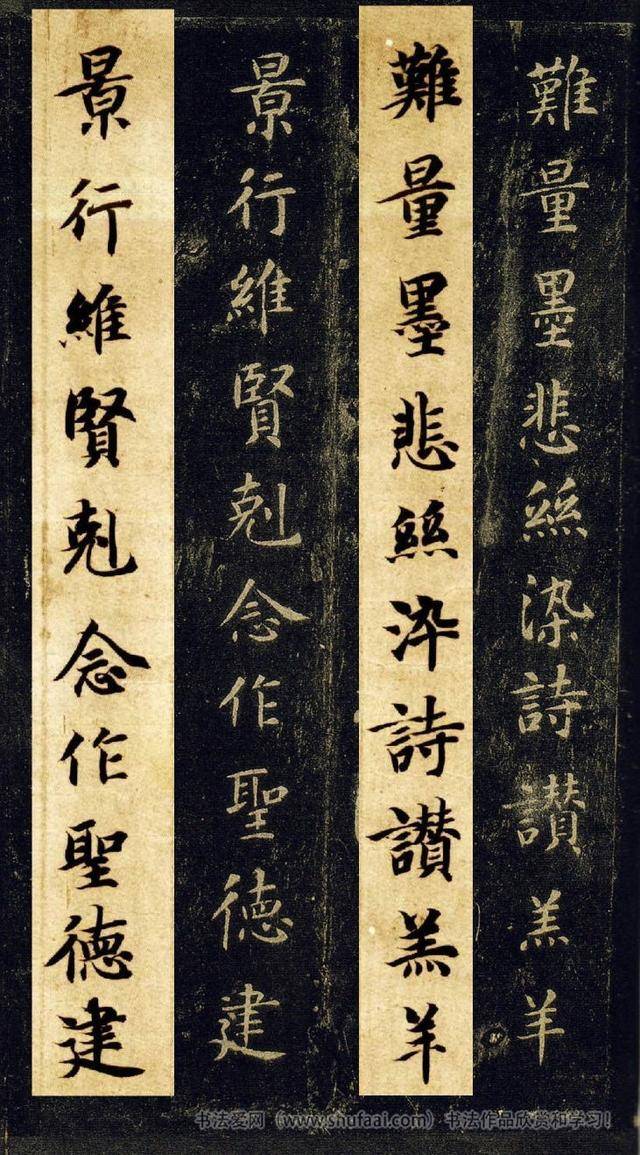 難量墨悲絲染詩讃羔羊
難量墨悲絲染詩讃羔羊
景行維賢剋念作聖徳建
景行維賢剋念作聖徳建
书法爱网（www.shufaai.com）书法作品欣赏和学习！